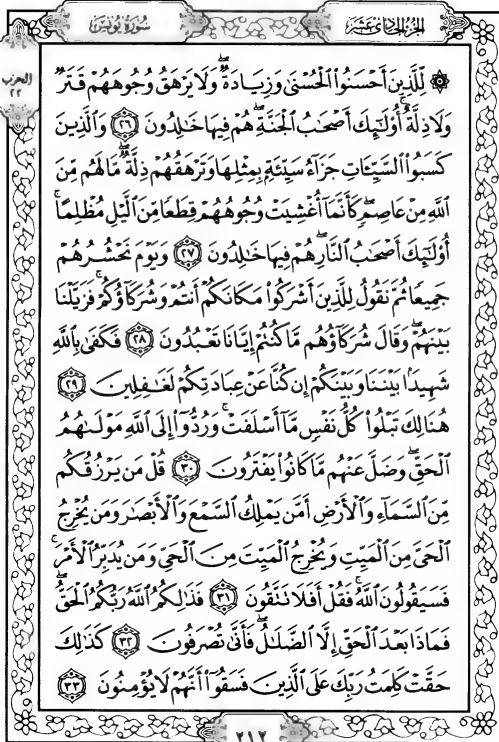 سُورَةُ يُونُسَ
الجزء الحادى عشر
الحزب
٢٢
۞ لِّلَّذِينَ أَحْسَنُوا۟ ٱلْحُسْنَىٰ وَزِيَادَةٌ ۖ وَلَا يَرْهَقُ وُجُوهَهُمْ قَتَرٌ
وَلَا ذِلَّةٌ ۚ أُو۟لَـٰٓئِكَ أَصْحَـٰبُ ٱلْجَنَّةِ ۖ هُمْ فِيهَا خَـٰلِدُونَ ٢٦ وَٱلَّذِينَ
كَسَبُوا۟ ٱلسَّيِّـَٔاتِ جَزَآءُ سَيِّئَةٍۭ بِمِثْلِهَا وَتَرْهَقُهُمْ ذِلَّةٌ ۖ مَّا لَهُم مِّنَ
ٱللَّهِ مِنْ عَاصِمٍ ۖ كَأَنَّمَآ أُغْشِيَتْ وُجُوهُهُمْ قِطَعًا مِّنَ ٱلَّيْلِ مُظْلِمًا ۚ
أُو۟لَـٰٓئِكَ أَصْحَـٰبُ ٱلنَّارِ ۖ هُمْ فِيهَا خَـٰلِدُونَ ٢٧ وَيَوْمَ نَحْشُرُهُمْ
جَمِيعًا ثُمَّ نَقُولُ لِلَّذِينَ أَشْرَكُوا۟ مَكَانَكُمْ أَنتُمْ وَشُرَكَآؤُكُمْ ۚ فَزَيَّلْنَا
بَيْنَهُمْ ۖ وَقَالَ شُرَكَآؤُهُم مَّا كُنتُمْ إِيَّانَا تَعْبُدُونَ ٢٨ فَكَفَىٰ بِٱللَّهِ
شَهِيدًۢا بَيْنَنَا وَبَيْنَكُمْ إِن كُنَّا عَنْ عِبَادَتِكُمْ لَغَـٰفِلِينَ ٢٩
هُنَالِكَ تَبْلُوا۟ كُلُّ نَفْسٍ مَّآ أَسْلَفَتْ ۚ وَرُدُّوٓا۟ إِلَى ٱللَّهِ مَوْلَىٰهُمُ
ٱلْحَقِّ ۖ وَضَلَّ عَنْهُم مَّا كَانُوا۟ يَفْتَرُونَ ٣٠ قُلْ مَن يَرْزُقُكُم
مِّنَ ٱلسَّمَآءِ وَٱلْأَرْضِ أَمَّن يَمْلِكُ ٱلسَّمْعَ وَٱلْأَبْصَـٰرَ وَمَن يُخْرِجُ
ٱلْحَىَّ مِنَ ٱلْمَيِّتِ وَيُخْرِجُ ٱلْمَيِّتَ مِنَ ٱلْحَىِّ وَمَن يُدَبِّرُ ٱلْأَمْرَ ۚ
فَسَيَقُولُونَ ٱللَّهُ ۚ فَقُلْ أَفَلَا تَتَّقُونَ ٣١ فَذَٰلِكُمُ ٱللَّهُ رَبُّكُمُ ٱلْحَقُّ ۖ
فَمَاذَا بَعْدَ ٱلْحَقِّ إِلَّا ٱلضَّلَـٰلُ ۖ فَأَنَّىٰ تُصْرَفُونَ ٣٢ كَذَٰلِكَ
حَقَّتْ كَلِمَتُ رَبِّكَ عَلَى ٱلَّذِينَ فَسَقُوٓا۟ أَنَّهُمْ لَا يُؤْمِنُونَ ٣٣
٢١٢